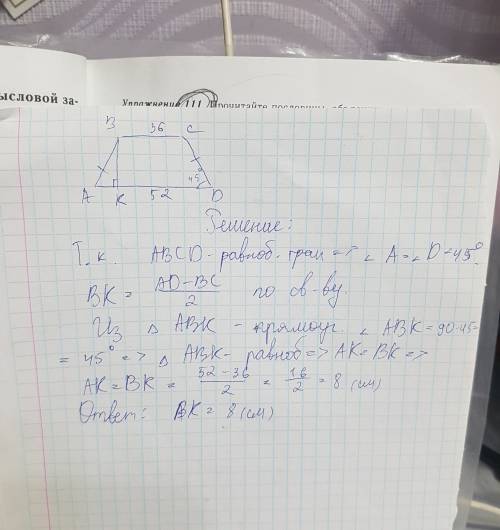 ысловой за-
Упражнение 111 Прочитайте пословицы
B 36 C
45°
A K 52 D
Решение:
Т.к. ABCD - равноб. трап => ∠A=∠D=45°
BK = AD-BC / 2 по св-ву.
Из △ ABK - прямоуг. ∠ABK=90-45=
= 45° => △ ABK - равноб => AK=BK =>
AK=BK = 52-36 / 2 = 16 / 2 = 8 (см)
Ответ: BK = 8 (см)